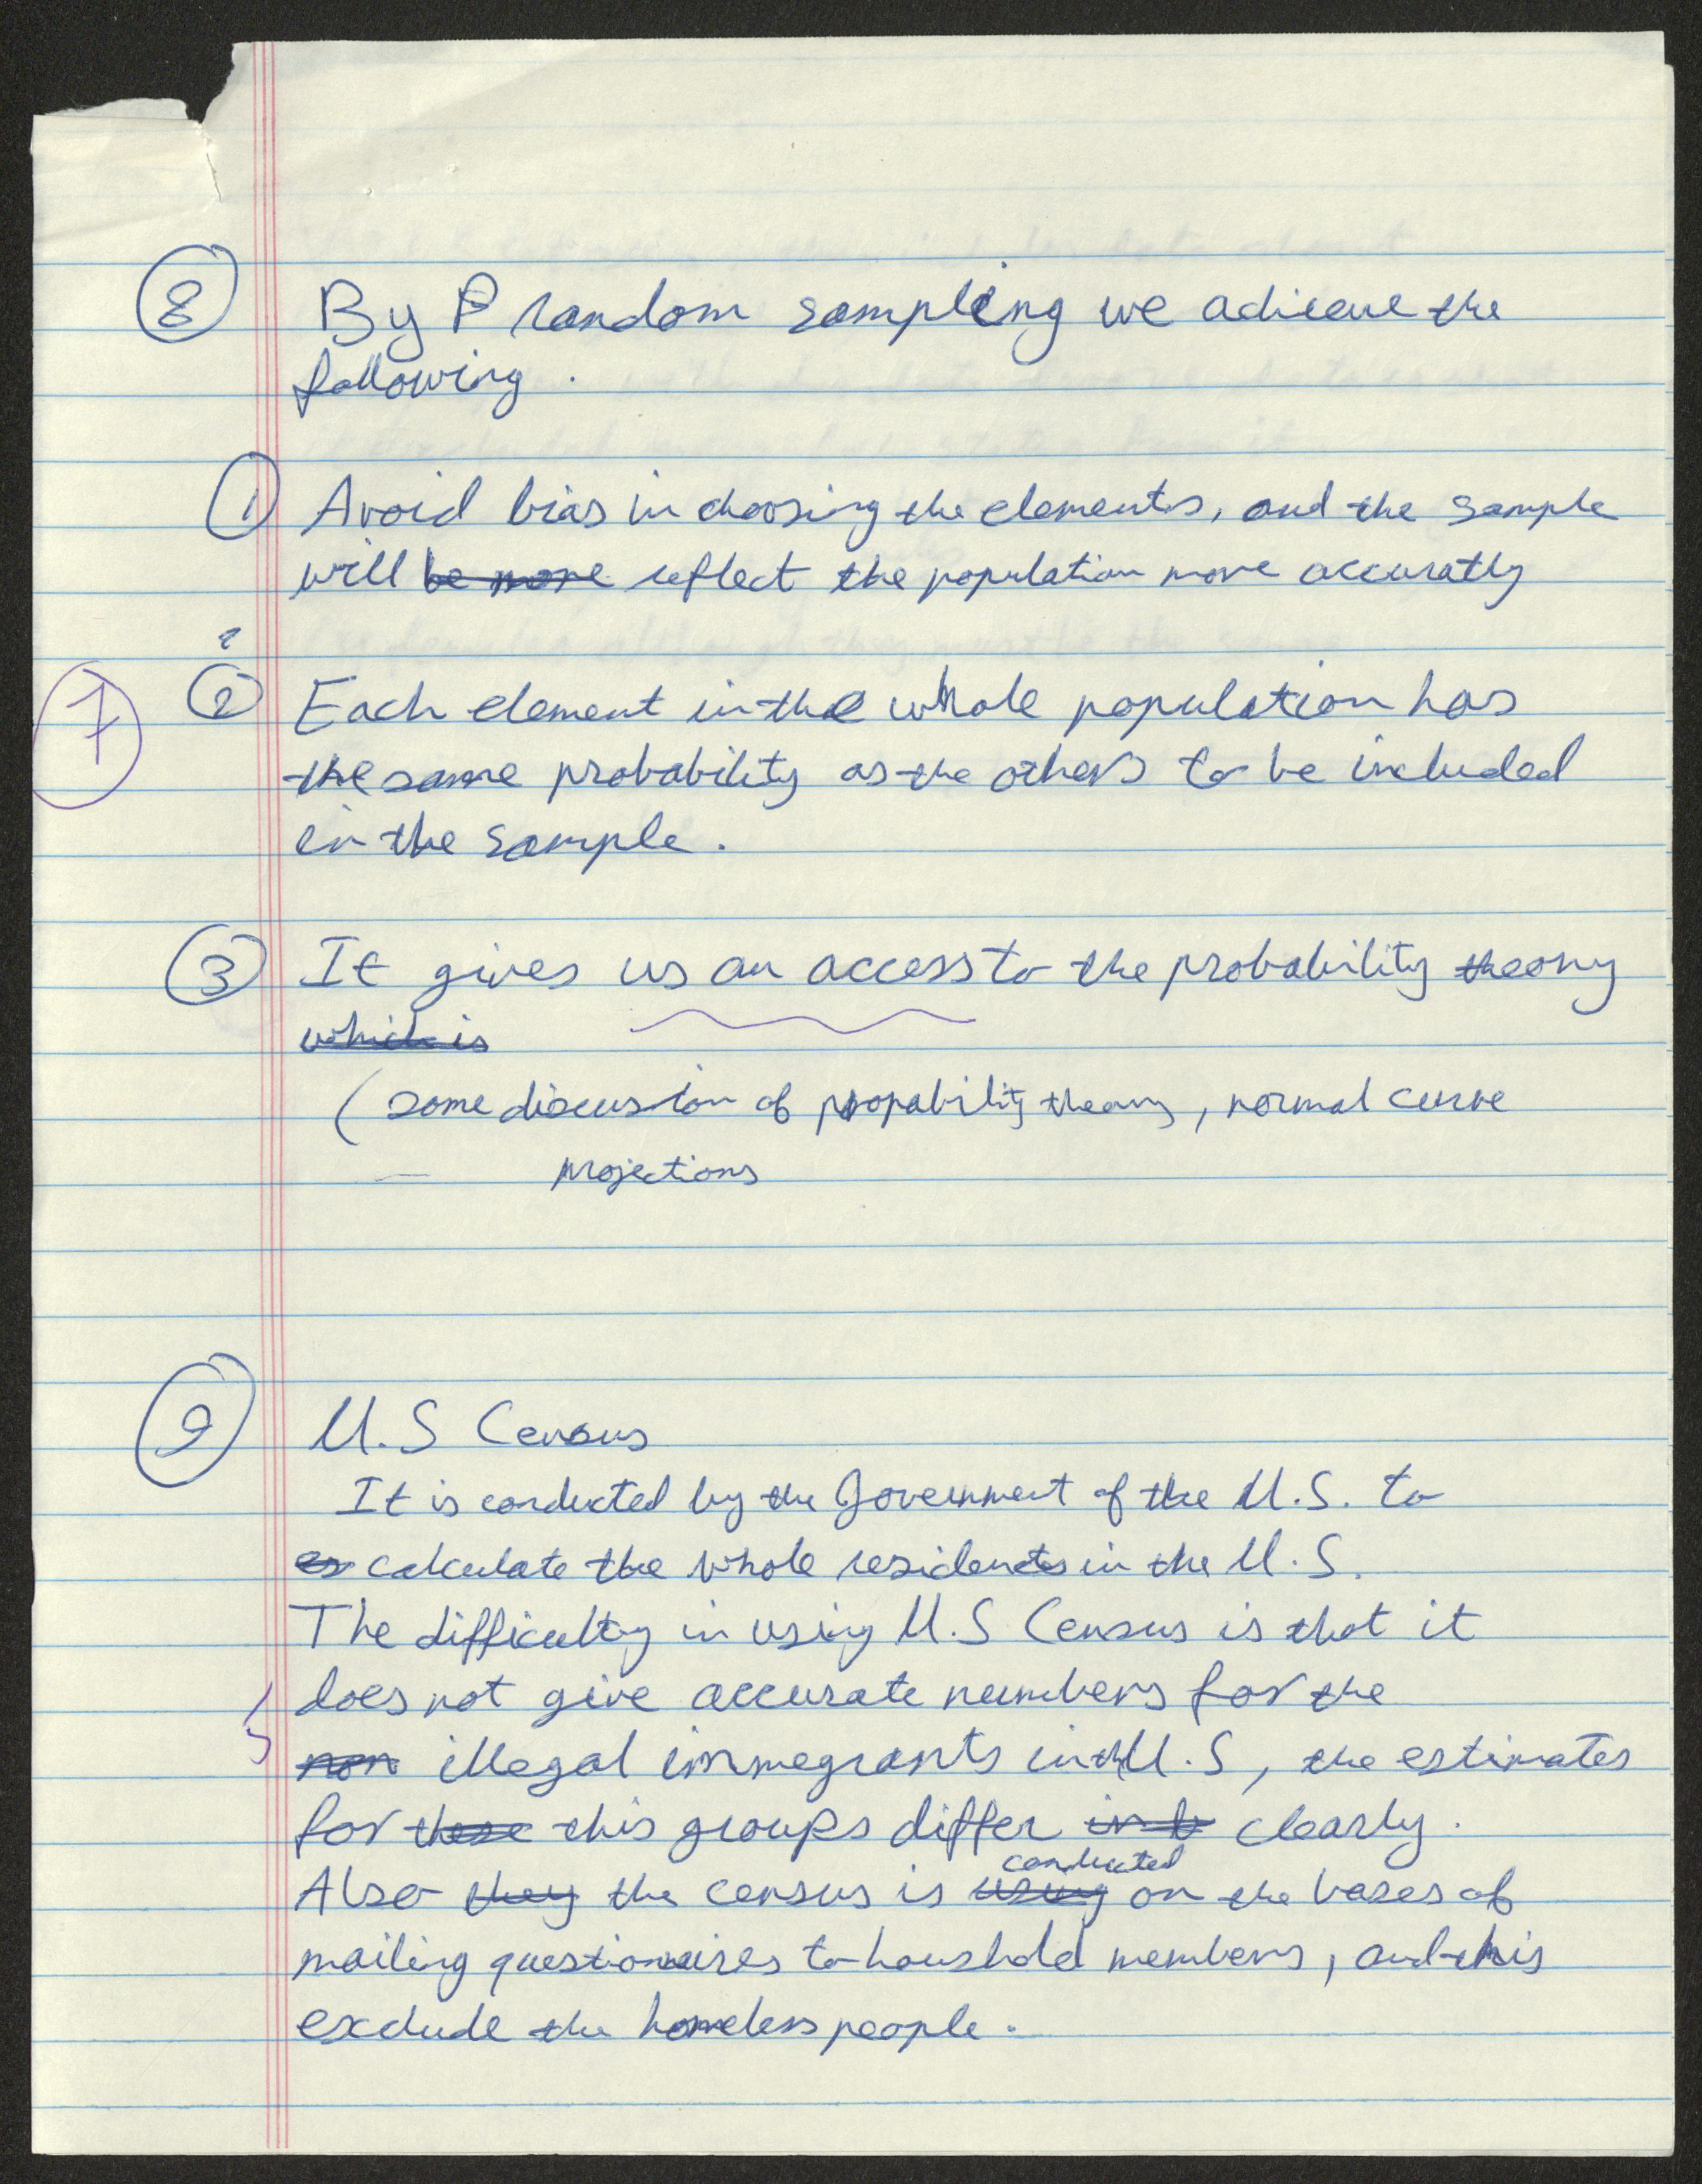 8 By P random sampling we achieve the
following.
1 Avoid bias in choosing the elements, and the sample
will be more reflect the population more accuratly
7
2 Each element in the whole population has
the same probability as the others to be included
in the sample.
3 It gives us an access to the probability theory
which is
(some discussion of propability theory, normal curve
projections
9 U.S Census
It is conducted by the Government of the U.S. to
es calculate the whole residents in the U.S.
The difficulty in using U.S Census is that it
does not give accurate numbers for the
non illegal immegrants in the U.S, the estimates
for these this groups differ in t clearly.
conducted
Also they the census is using on the bases of
mailing questionnaires to houshold members, and this
exclude the homeless people.